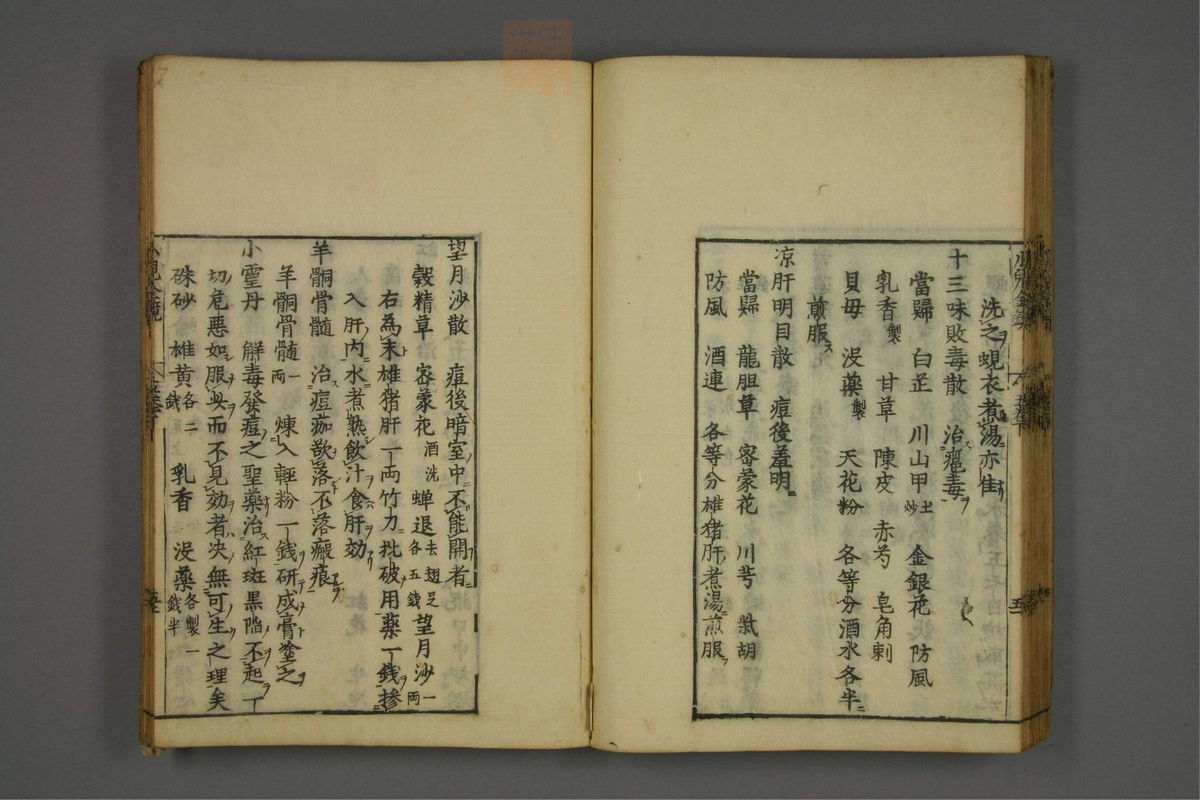 洗之蜆衣煮湯亦佳
十三味敗毒散 治瘟毒
當歸 白芷 川山甲土炒 金銀花 防風
乳香製 甘草 陳皮 赤芍 皂角刺
貝母 沒藥製 天花粉 各等分酒水各半
煎服
凉肝明目散 痘後羞明
當歸 龍胆草 密蒙花 川芎 柴胡
防風 酒連 各等分雄猪肝煮湯煎服
望月沙散 痘後暗室中不能開者
穀精草 密蒙花酒洗 蝉退去翅足各五錢 望月沙一両
右為末雄猪肝一両竹刀批破用藥一錢摻
入肝内水煮熟飲汁食肝効
羊䯊骨髓 治痘痂欲落不落瘢痕
羊䯊骨骨髓一両 煉入輕粉一錢研成膏塗之
小靈丹 解毒發痘之聖藥治紅斑黒陥不起一
切危惡如服此而不見効者决無可生之理矣
硃砂 雄黄各二錢 乳香 沒藥各製一錢半